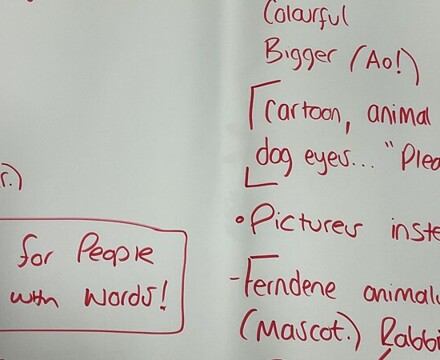 r.)
for People
with words!
Colourful
Bigger (A0!)
cartoon, animal
dog eyes... "Plea
• Pictures inste
- Ferndene animals
(Mascot.) Rabbi